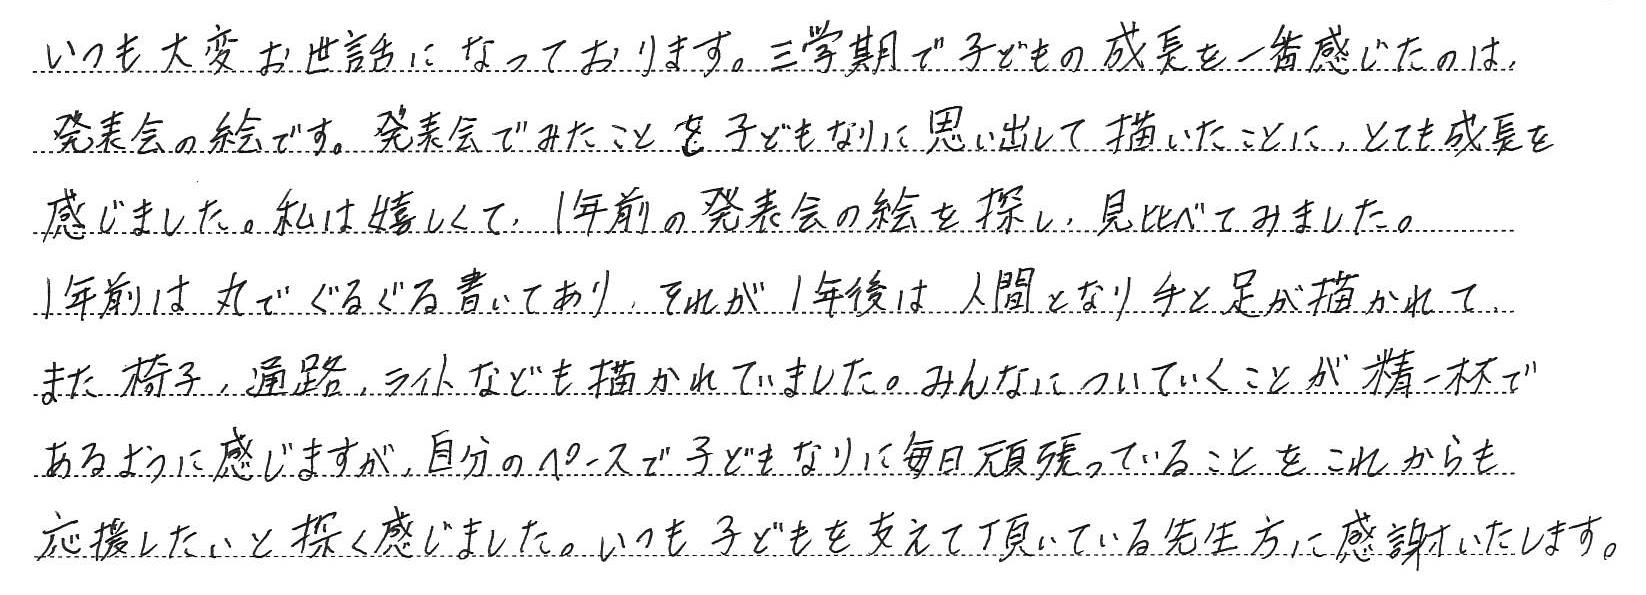 いつも大変お世話になっております。三学期で子どもの成長を一番感じたのは、
発表会の絵です。発表会でみたことを子どもなりに思い出して描いたことに、とても成長を
感じました。私は嬉しくて、1年前の発表会の絵を探し、見比べてみました。
1年前は丸でぐるぐる書いてあり、それが1年後は人間となり手と足が描かれて、
また椅子、通路、ライトなども描かれていました。みんなについていくことが精一杯で
あるように感じますが、自分のペースで子どもなりに毎日頑張っていることをこれからも
応援したいと探く感じました。いつも子どもを支えて頂いている先生方に感謝いたします。